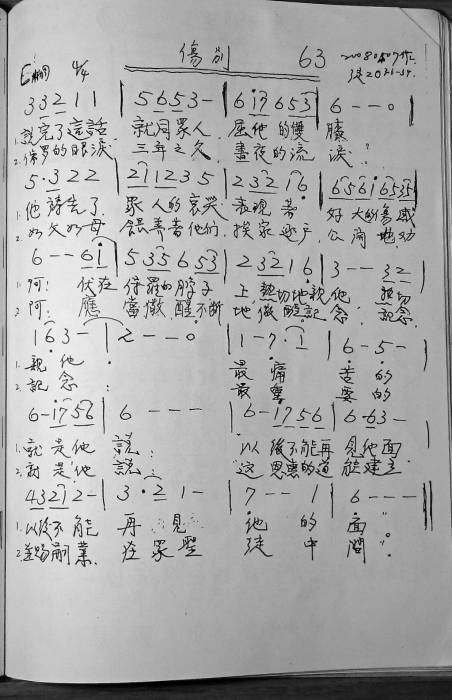 傷別 63 20080507作
E調 4/4 徒20:31-37
3 3 2 1 1 | 5 6 5 3 - | 6 1 7 6 5 3 | 6 - - 0
1. 説完了這話 就同眾人 屈他的 膝
2. 保罗的眼淚 三年之久 晝夜的流 淚
5 · 3 2 2 | 2 1 1 2 3 5 | 2 3 2 1 6 | 6 5 6 1 6 5 3 5
1. 他禱告了 眾人的哀哭 表現著 好大的傷感
2. 如父如母 餵養著他們 挨家逐户 公開地劝
6 - - 6 1 | 5 3 5 6 5 3 | 2 3 2 1 6 | 3 - - 3 2
1. 阿: 伏在 保羅的脖子 上, 熱切地親他 熱切
2. 阿: 應 當儆醒不斷 地, 儆醒記念, 記念
1 6 3 - | 2 - - 0 | 1 - 7 · 1 | 6 - 5 -
1. 親他 最痛 苦的
2. 記念: 最重 要的
6 - 1 7 5 6 | 6 - - - | 6 - 1 7 5 6 | 6 - 6 3 -
1. 就是他 説: 以後不能再 見他面
2. 就是他 説: 这恩惠的道 能建立
4 3 2 1 2 - | 3 · 2 1 - | 7 - - 1 | 6 - - -
1. 以後不能 再見 他的 面
2. 並賜嗣業 在眾聖 徒中 間